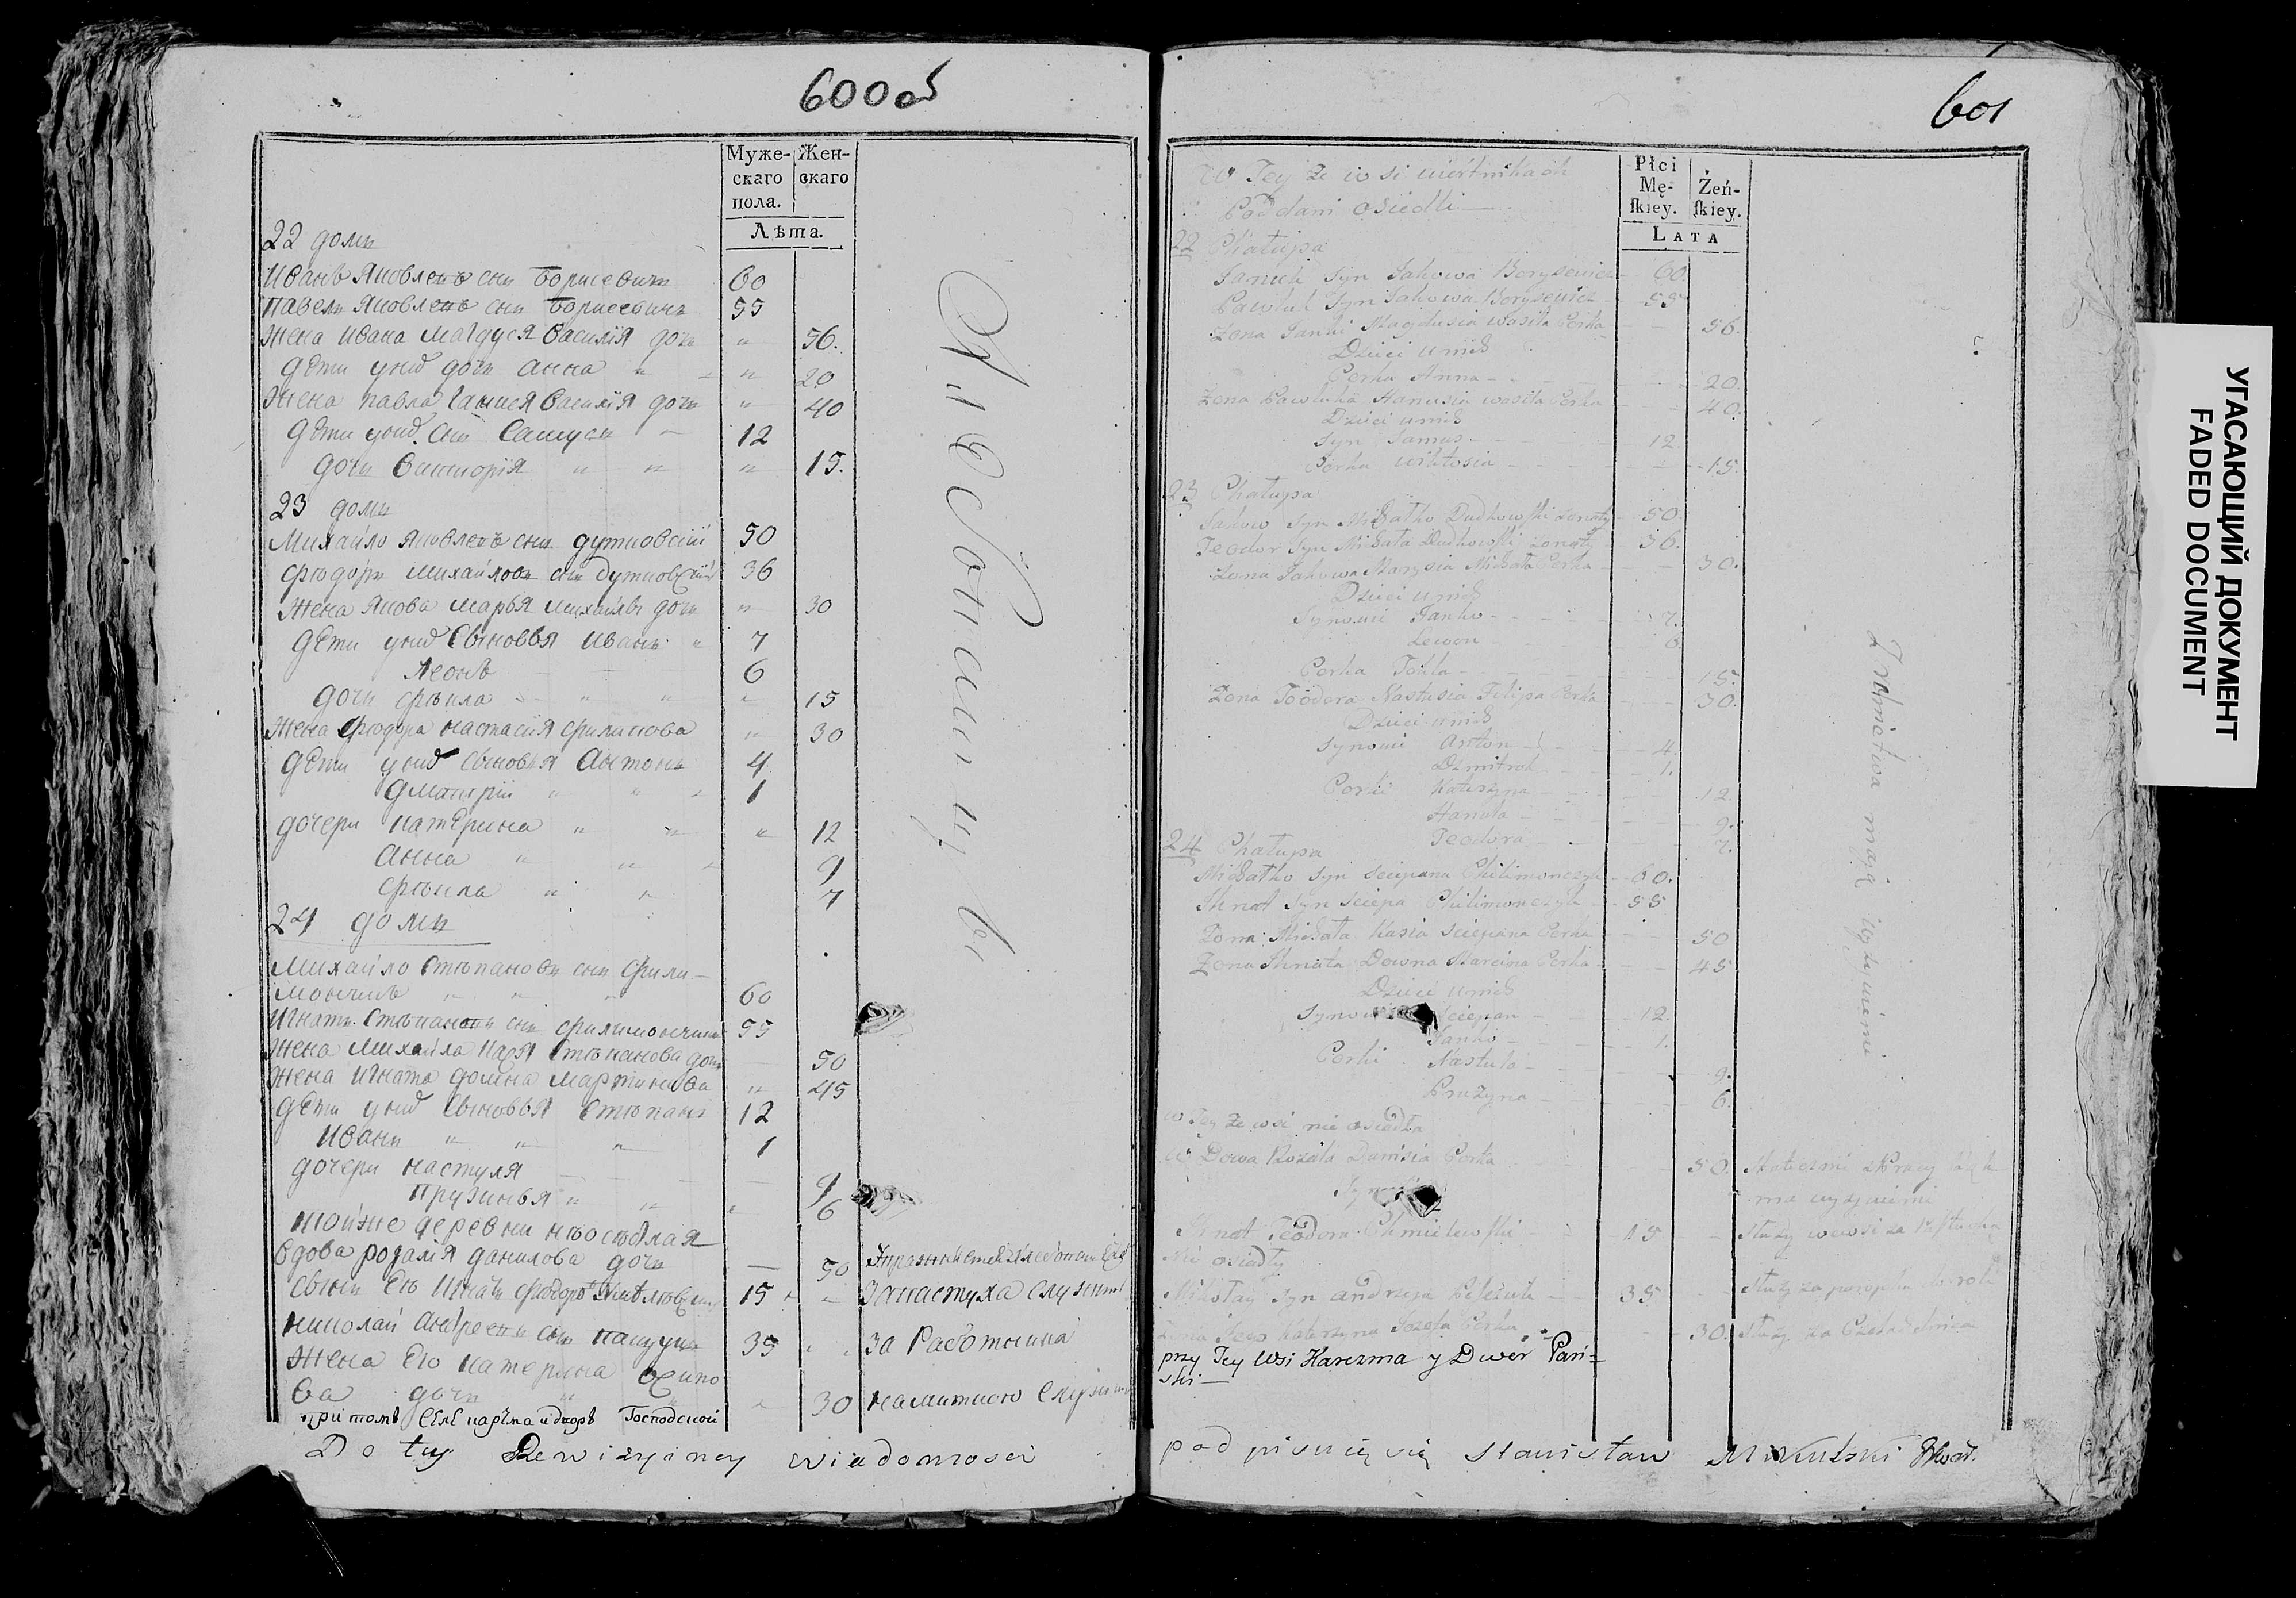 600 об
Муже-
скаго
пола.
Жен-
скаго
Лѣта.
22 домъ
Иванъ Яковлевъ сынъ Борисевичъ 60
Павелъ Яковлевъ сынъ Борисевичъ 55
Жена Ивана Магдуся Василія дочь " 56.
Дѣти у нихъ дочь Анна " " 20
Жена Павла Гануся Василія дочь " 40
Дѣти у нихъ сынъ Самусь 12
дочь Викторія " " " 15.
23 домъ
Михайло Яковлевъ сынъ Дутковскій 50
Фюдоръ Михайловъ сынъ Дутковскій 36
Жена Якова Марья Михайлы дочь " 30
Дѣти у нихъ Сыновья Иванъ " 7
Леонъ 6
дочь Фѣкла " " " 15
Жена Фюдора Настасія Филипова " 30
Дѣти у нихъ Сыновья Антонъ 4
Дмитрій " " 1
дочери Катерина " " " 12
Анна " " 9
Фѣкла " " 7
24 домъ
Михайло Стѣпановъ сынъ Фили-
мончикъ " " " 60
Игнатъ Стѣпановъ сынъ Филимончикъ 55
Жена Михайла Кася Стѣпанова дочь 50
Жена Игната Домна Мартинова " 45
Дѣти у нихъ Сыновья Стѣпанъ 12
Иванъ " " " 1
дочери Настуля 9
Прузинья " " 6
тойже деревни неоседлая
Вдова Розалія Данилова дочь — 50
Сынъ Ею Игнатъ Фюдоръ 15 " " За пастуха служитъ
Николай Андреевъ сынъ 35 " " За Работника
Жена Ею Катерина Осипо
ва дочь " 30
при томъ Селѣ карчма и дворъ Господской
Хлебопашцы
601
Płci
Mę-
skiey.
Żeń-
skiey.
LATA
W Tey że wsi
Poddani osiedli
22 Chałupa
Januk syn Jakowa Borysewicz 60
Pawluk syn Jakowa Borysewicz 55
Żona Janki Magdusia Wasila Corka 56.
Dzieci u nich
Corka Anna 20.
Żona Pawluka Hanusia Wasila Corka 40.
Dzieci u nich
Syn Samus 12.
Corka Wiktosia 15.
23 Chałupa
Jakow syn Michałko Dudkowski żonaty 50.
Teodor syn Michała Dudkowski żonaty 36.
Żona Jakowa Marysia Michała Corka 30.
Dzieci u nich
Synowie Janko 7.
Lewon 6
Corka Tekla 15.
Żona Teodora Nastusia Filipa Corka 30.
Dzieci u nich
Synowie Anton 4.
Dzmitrok 1.
Corki Katerzyna 12
Hanula 9.
Teodora 7.
24 Chałupa
Michałko syn Sciepana Chilimonczyk 60.
Ihnat syn Sciepa Chilimonczyk 55
Żona Michała Kasia Sciepana Corka 50
Żona Ihnata Domna Marcina Corka 45
Dzieci u nich
Synowie Sciepan 12.
Janko 1.
Corki Nastula 9.
Pruzyna 6.
W Tey że wsi nie osiadła
Wdowa Rozalia Danisia Corka 50
Ihnat Teodora Chmielewski 15
Nie osiadły
Mikołay syn Andrzeja 35
Żona Jego Katerzyna Jozefa Corka 30.
przy Tey Wsi Karczma y Dwór Pań-
ski
Z rolnictwa mają wyżywienie
Do tey Rewizyiney wiadomosci podpisuię się Stanisław Mikulski
УГАСАЮЩИЙ ДОКУМЕНТ
FADED DOCUMENT